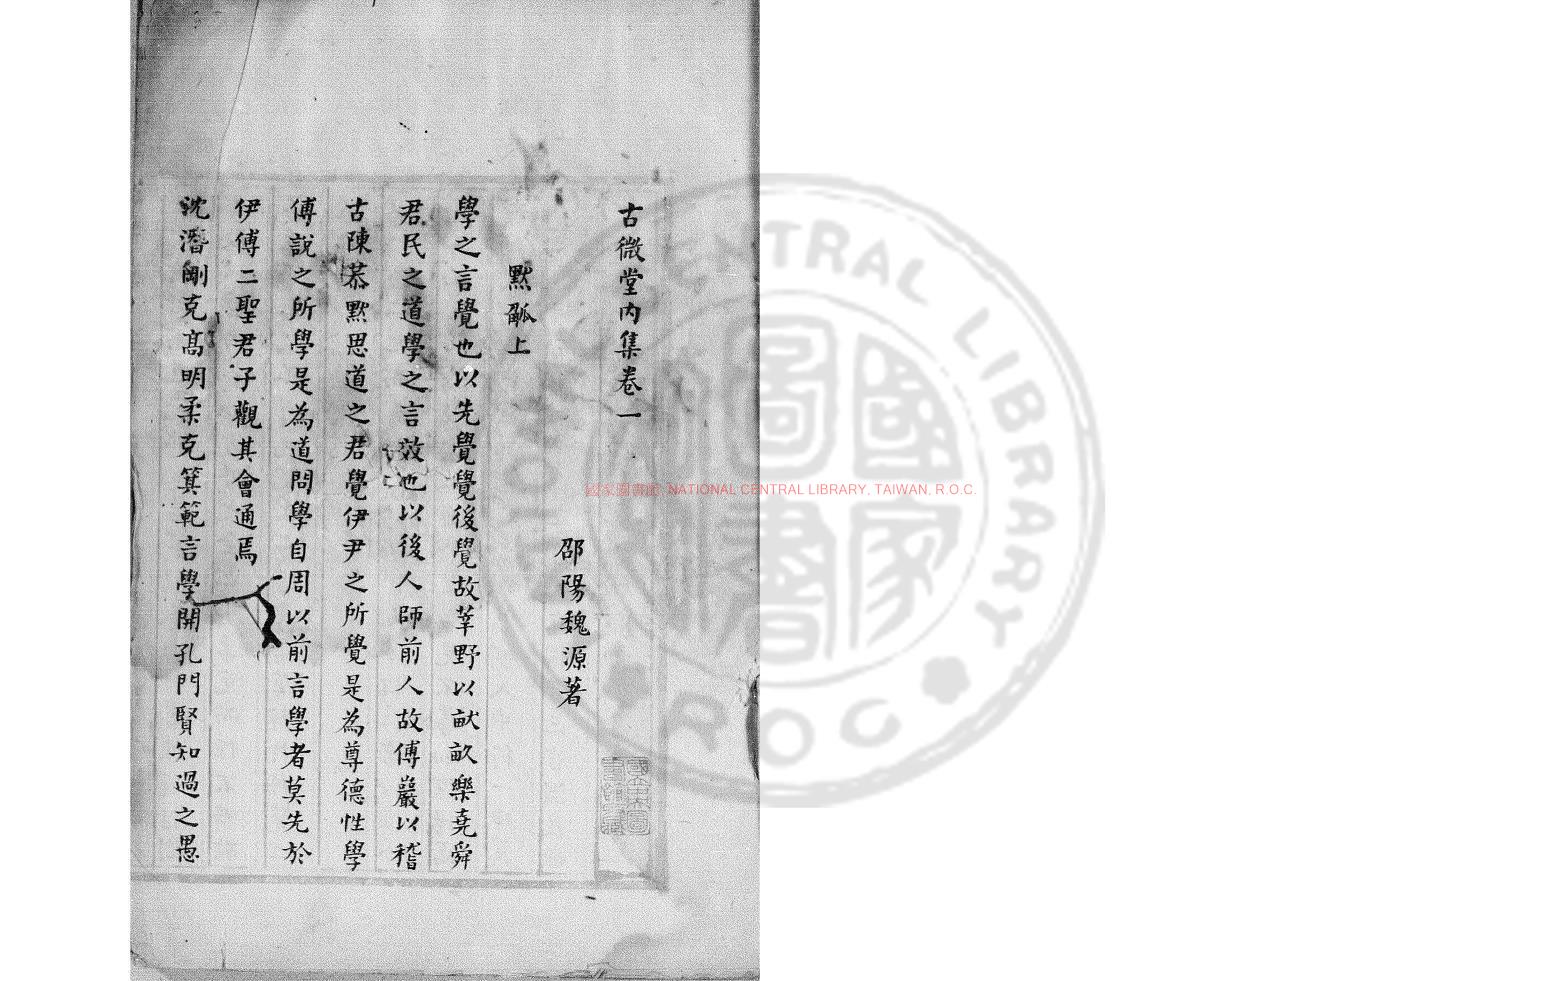 古微堂內集卷一
邵陽魏源著
默觚上
學之言覺也以先覺覺後覺故莘野以畎畝樂堯舜
君民之道學之言效也以後人師前人故傅巖以稽
古陳恭默思道之君覺伊尹之所覺是為尊德性學
傅說之所學是為道問學自周以前言學者莫先於
伊傅二聖君子觀其會通焉
沈潛剛克高明柔克箕範言學開孔門賢知過之愚
國家圖書館 NATIONAL CENTRAL LIBRARY, TAIWAN, R.O.C.
CENTRAL LIBRARY
R.O.C